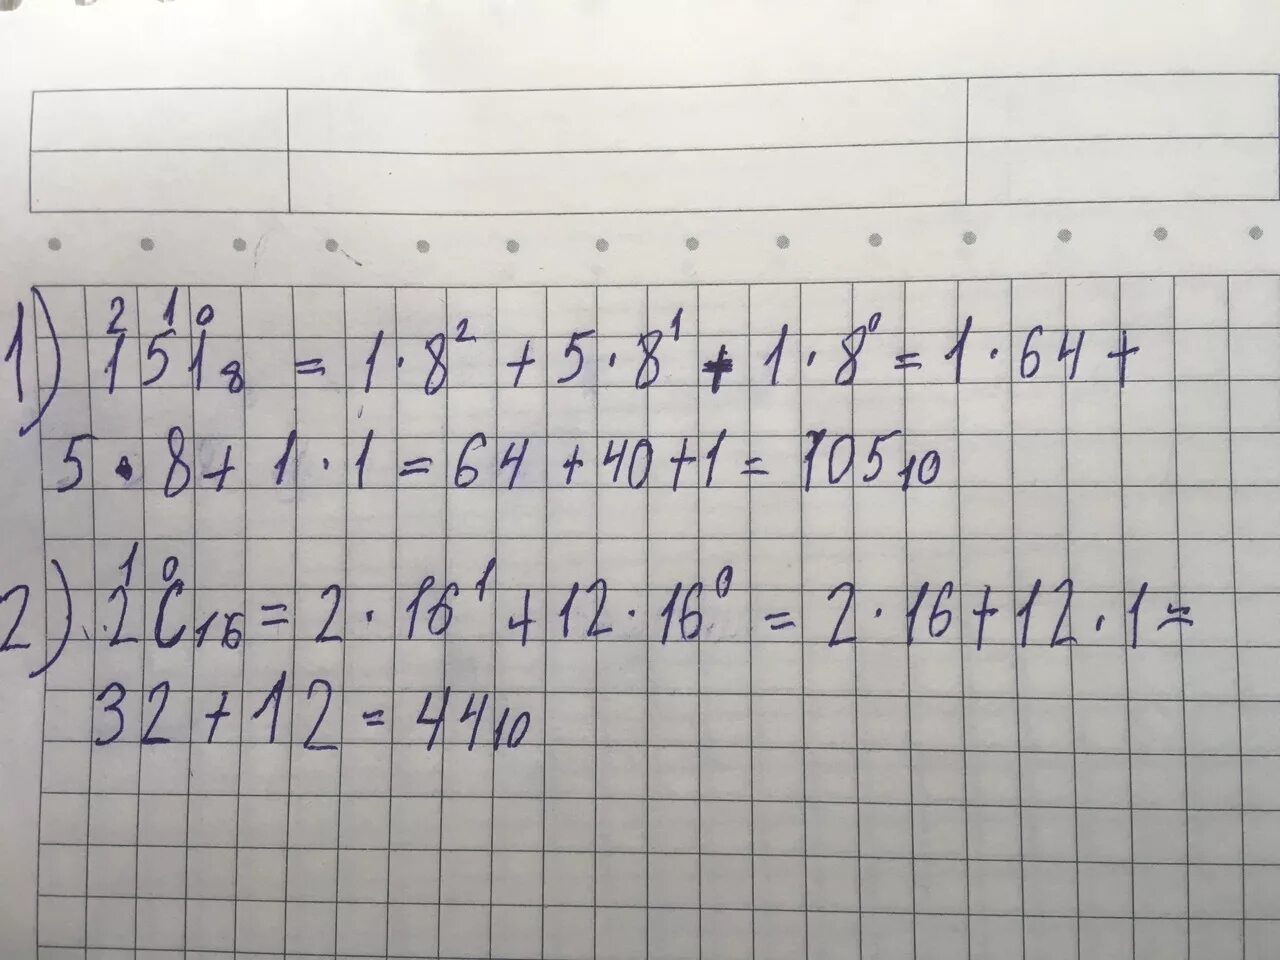 2 1 0
1) 151₈ = 1·8² + 5·8¹ + 1·8⁰ = 1·64 +
5·8 + 1·1 = 64 + 40 + 1 = 105₁₀
1 0
2) 2C₁₆ = 2·16¹ + 12·16⁰ = 2·16 + 12·1 =
32 + 12 = 44₁₀